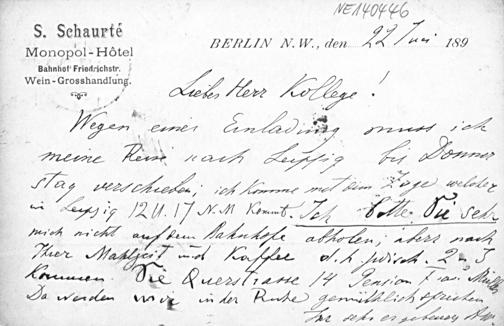 NE140446
S. Schaurté
Monopol-Hôtel
Bahnhof Friedrichstr.
Wein-Grosshandlung.
BERLIN N.W., den 22 Juni 189
Liebes Herr Kollege!
Wegen einer Einladung muss ich
meine Reise nach Leipzig bis Donners
stag verschieben; ich komme mit dem Zuge welcher
in Leipzig 12 U. 17 N.M kommt. Ich bitte Sie sehr
mich nicht auf dem Bahnhofe abholen; aber nach
Ihrer Mahlzeit und Kaffee d.h. zwisch. 2 u 3
Kommen. Die Querstrasse 14 Pension
Da werden wir in der Ruhe gemüthlich sprechen
Ihr sehr ergebener